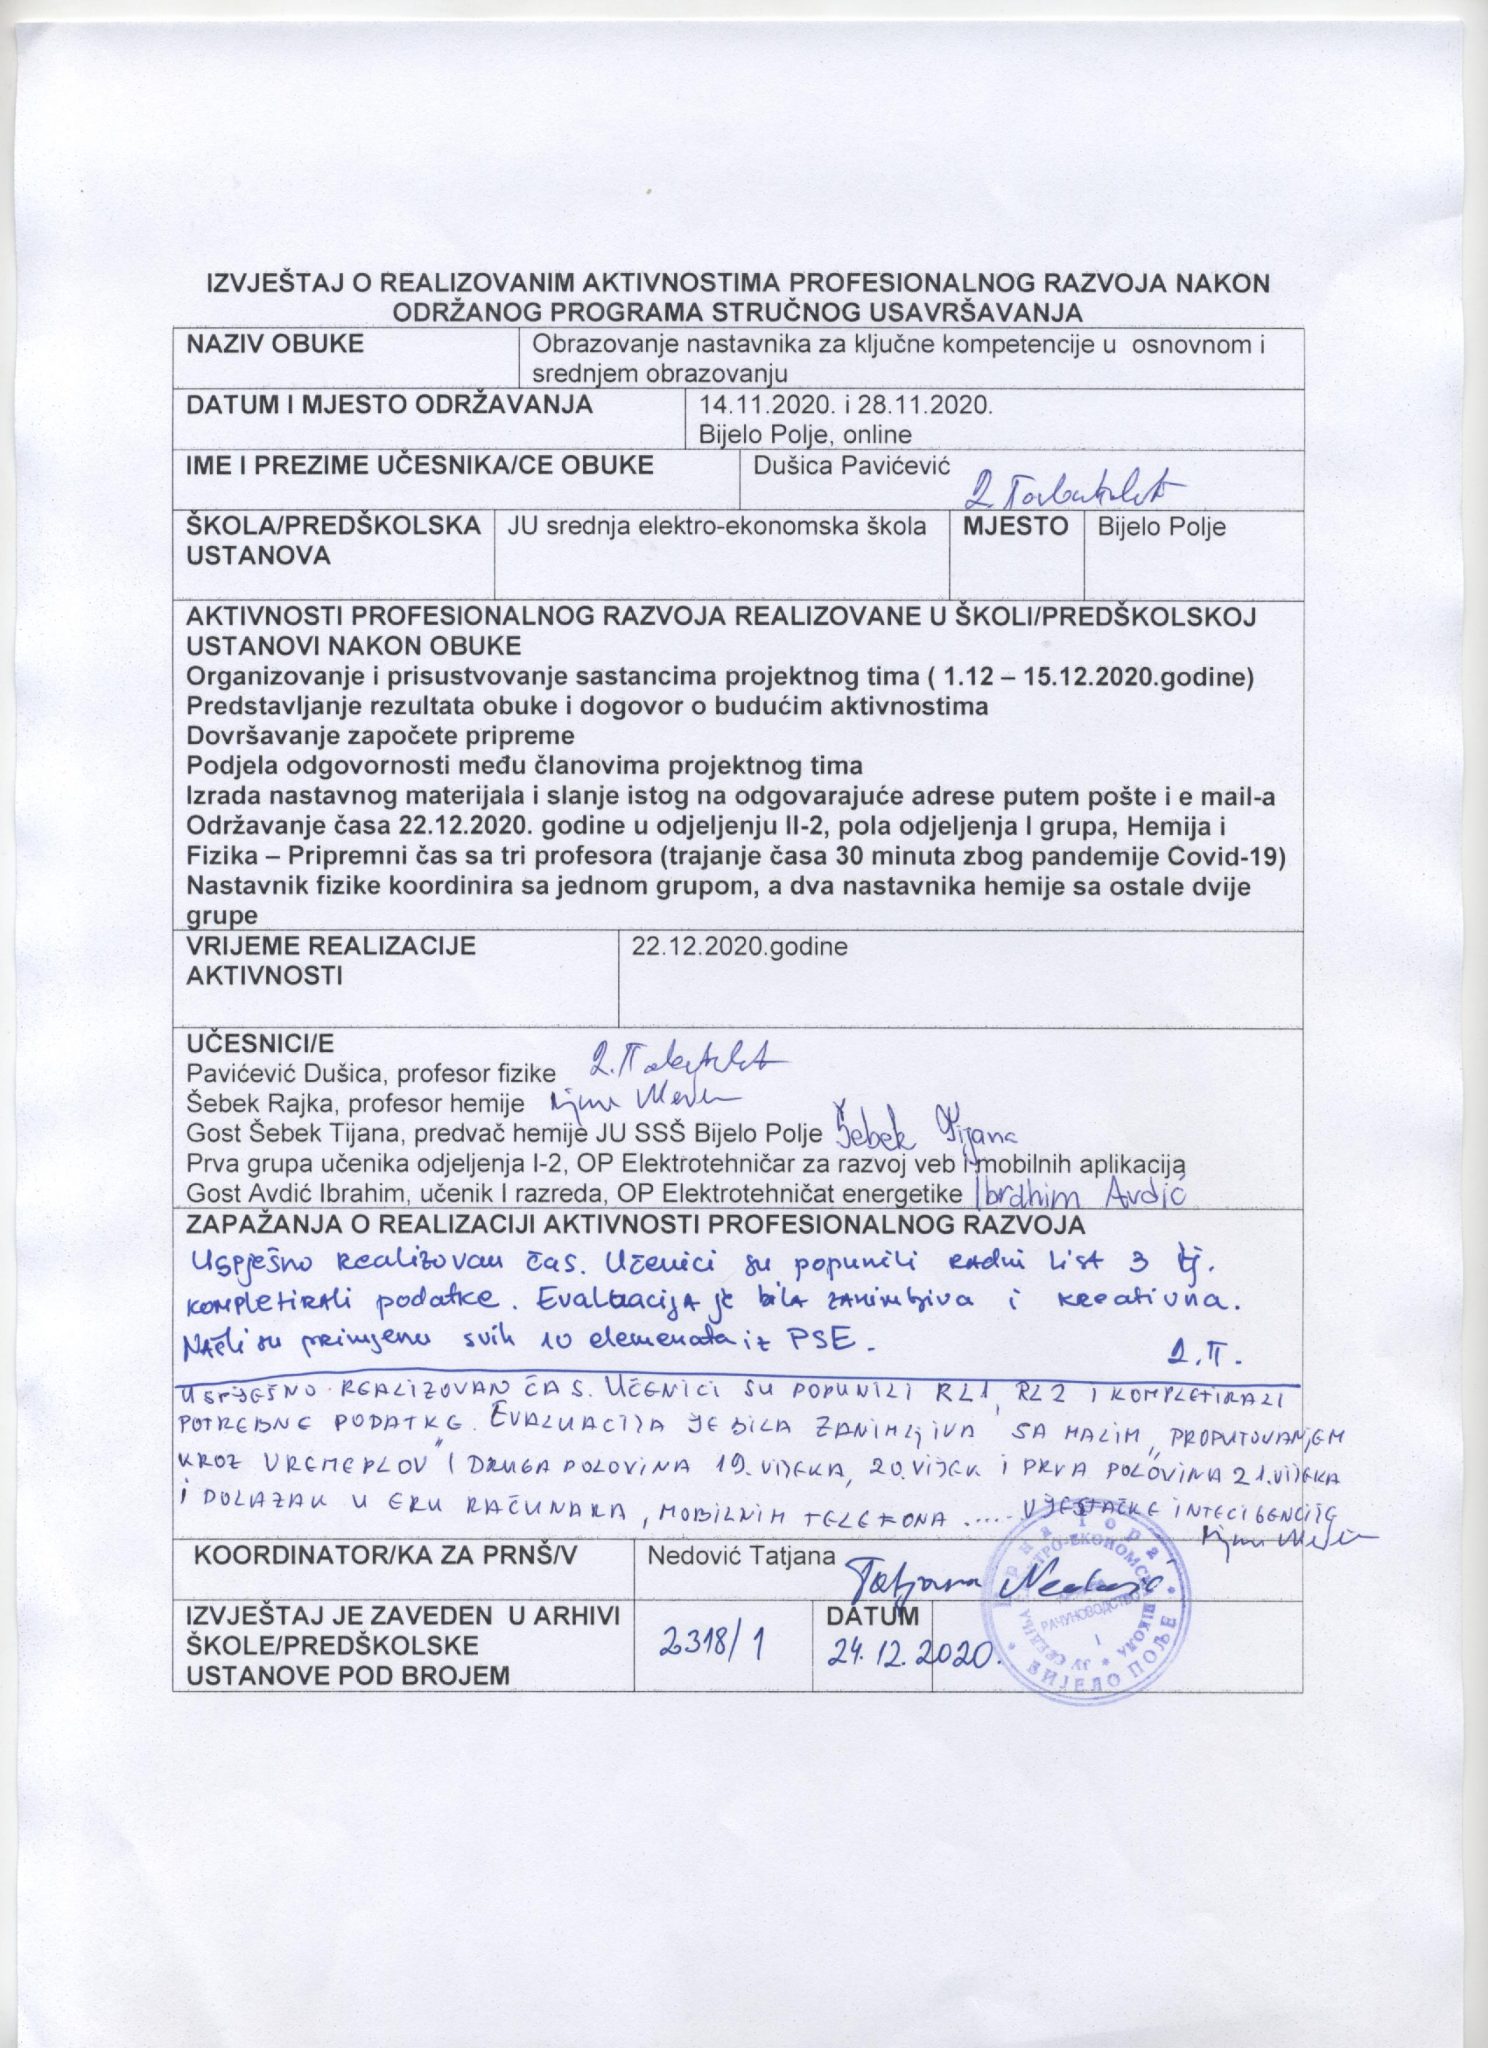 IZVJEŠTAJ O REALIZOVANIM AKTIVNOSTIMA PROFESIONALNOG RAZVOJA NAKON
ODRŽANOG PROGRAMA STRUČNOG USAVRŠAVANJA
NAZIV OBUKE
Obrazovanje nastavnika za ključne kompetencije u osnovnom i
srednjem obrazovanju
DATUM I MJESTO ODRŽAVANJA
14.11.2020. i 28.11.2020.
Bijelo Polje, online
IME I PREZIME UČESNIKA/CE OBUKE
Dušica Pavićević
ŠKOLA/PREDŠKOLSKA
USTANOVA
JU srednja elektro-ekonomska škola
MJESTO
Bijelo Polje
AKTIVNOSTI PROFESIONALNOG RAZVOJA REALIZOVANE U ŠKOLI/PREDŠKOLSKOJ
USTANOVI NAKON OBUKE
Organizovanje i prisustvovanje sastancima projektnog tima ( 1.12 – 15.12.2020.godine)
Predstavljanje rezultata obuke i dogovor o budućim aktivnostima
Dovršavanje započete pripreme
Podjela odgovornosti među članovima projektnog tima
Izrada nastavnog materijala i slanje istog na odgovarajuće adrese putem pošte i e mail-a
Održavanje časa 22.12.2020. godine u odjeljenju II-2, pola odjeljenja I grupa, Hemija i
Fizika – Pripremni čas sa tri profesora (trajanje časa 30 minuta zbog pandemije Covid-19)
Nastavnik fizike koordinira sa jednom grupom, a dva nastavnika hemije sa ostale dvije
grupe
VRIJEME REALIZACIJE
AKTIVNOSTI
22.12.2020.godine
UČESNICI/E
Pavićević Dušica, profesor fizike
Šebek Rajka, profesor hemije
Gost Šebek Tijana, predvač hemije JU SSŠ Bijelo Polje Šebek Tijana
Prva grupa učenika odjeljenja I-2, OP Elektrotehničar za razvoj veb i mobilnih aplikacija
Gost Avdić Ibrahim, učenik I razreda, OP Elektrotehničat energetike Ibrahim Avdić
ZAPAŽANJA O REALIZACIJI AKTIVNOSTI PROFESIONALNOG RAZVOJA
Uspješno realizovan čas. Učenici su popunili radni list 3 tj.
kompletirali podatke. Evaluacija je bila zanimljiva i kreativna.
Našli su primjenu svih 10 elemenata iz PSE.
USPJEŠNO REALIZOVAN ČAS. UČENICI SU POPUNILI RL1, RL2 I KOMPLETIRALI
POTREBNE PODATKE. EVALUACIJA JE BILA ZANIMLJIVA SA MALIM „PROPUTOVANJEM
KROZ VREMEPLOV" I DRUGA POLOVINA 19. VIJEKA, 20. VIJEK I PRVA POLOVINA 21. VIJEKA
I DOLAZAK U ERU RAČUNARA, MOBILNIH TELEFONA ..... VJEŠTAČKE INTELIGENCIJE
KOORDINATOR/KA ZA PRNŠ/V
Nedović Tatjana
Tatjana Nedović
IZVJEŠTAJ JE ZAVEDEN U ARHIVI
ŠKOLE/PREDŠKOLSKE
USTANOVE POD BROJEM
2318/1
DATUM
24.12.2020.
РАЧУНОВОДСТВО
БИЈЕЛО ПОЉЕ